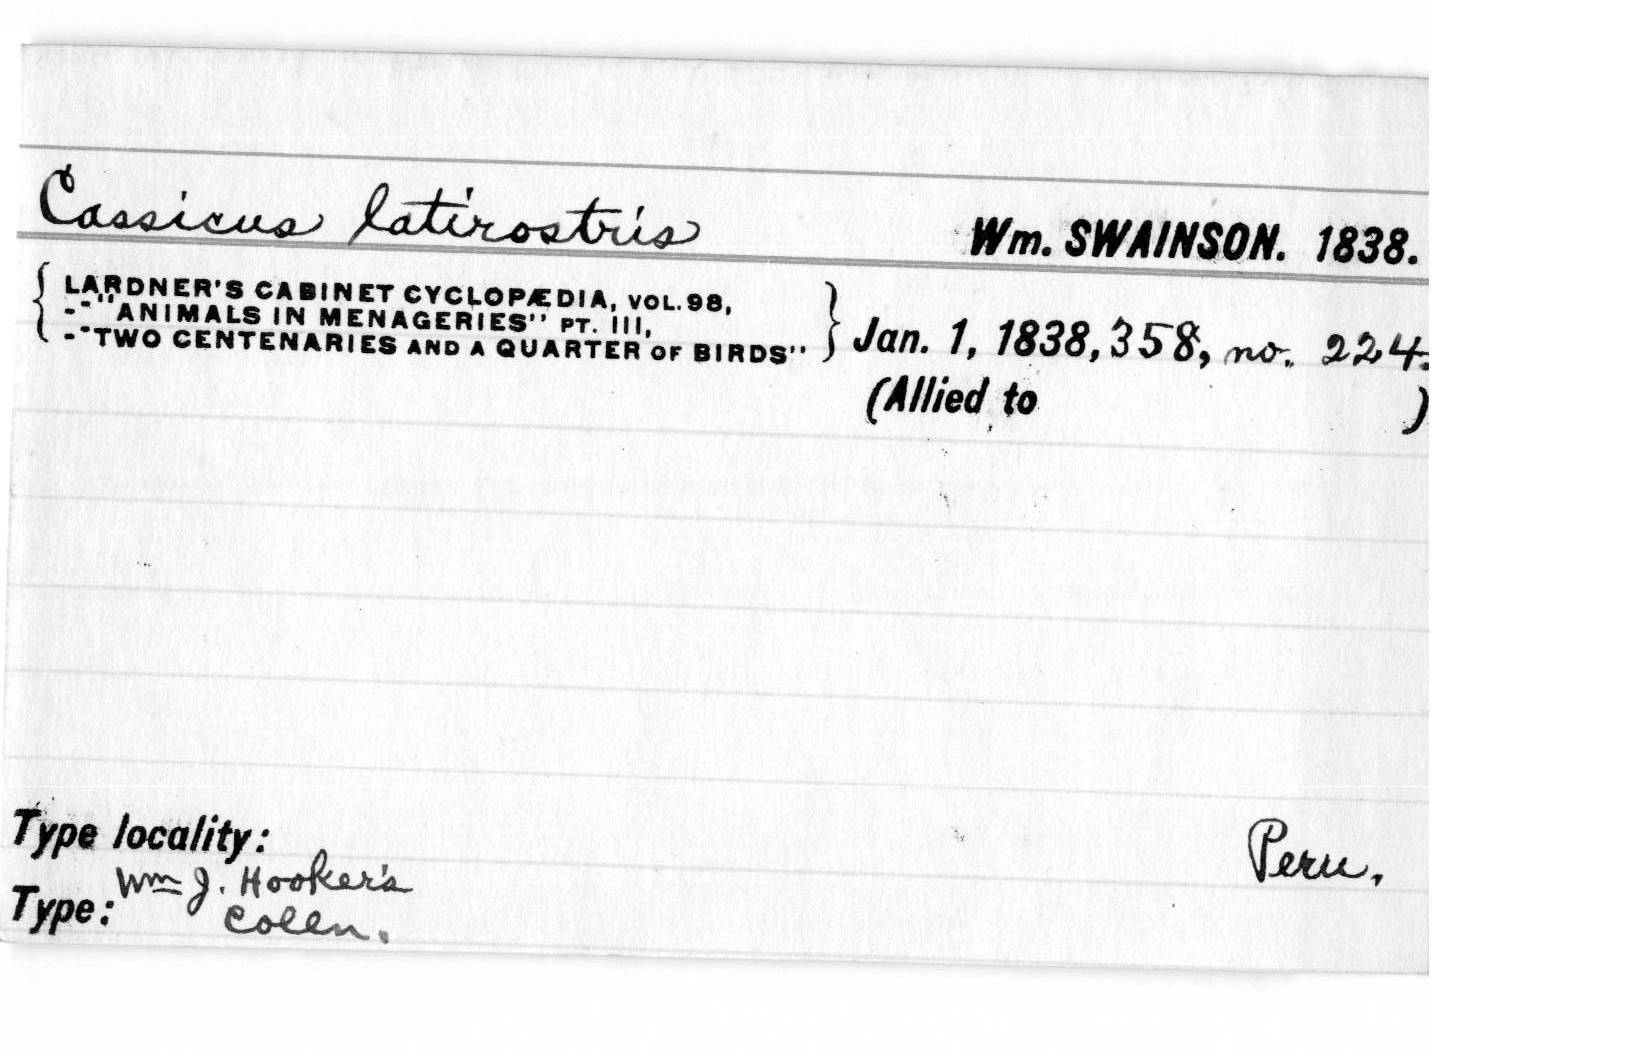 Cassicus latirostris Wm. SWAINSON. 1838.
{ LARDNER'S CABINET CYCLOPÆDIA, VOL. 98,
-"ANIMALS IN MENAGERIES" PT. III,
-"TWO CENTENARIES AND A QUARTER OF BIRDS" } Jan. 1, 1838, 358, no. 224.
(Allied to )
Type locality: Peru.
Type: Wm J. Hooker's
Colln.